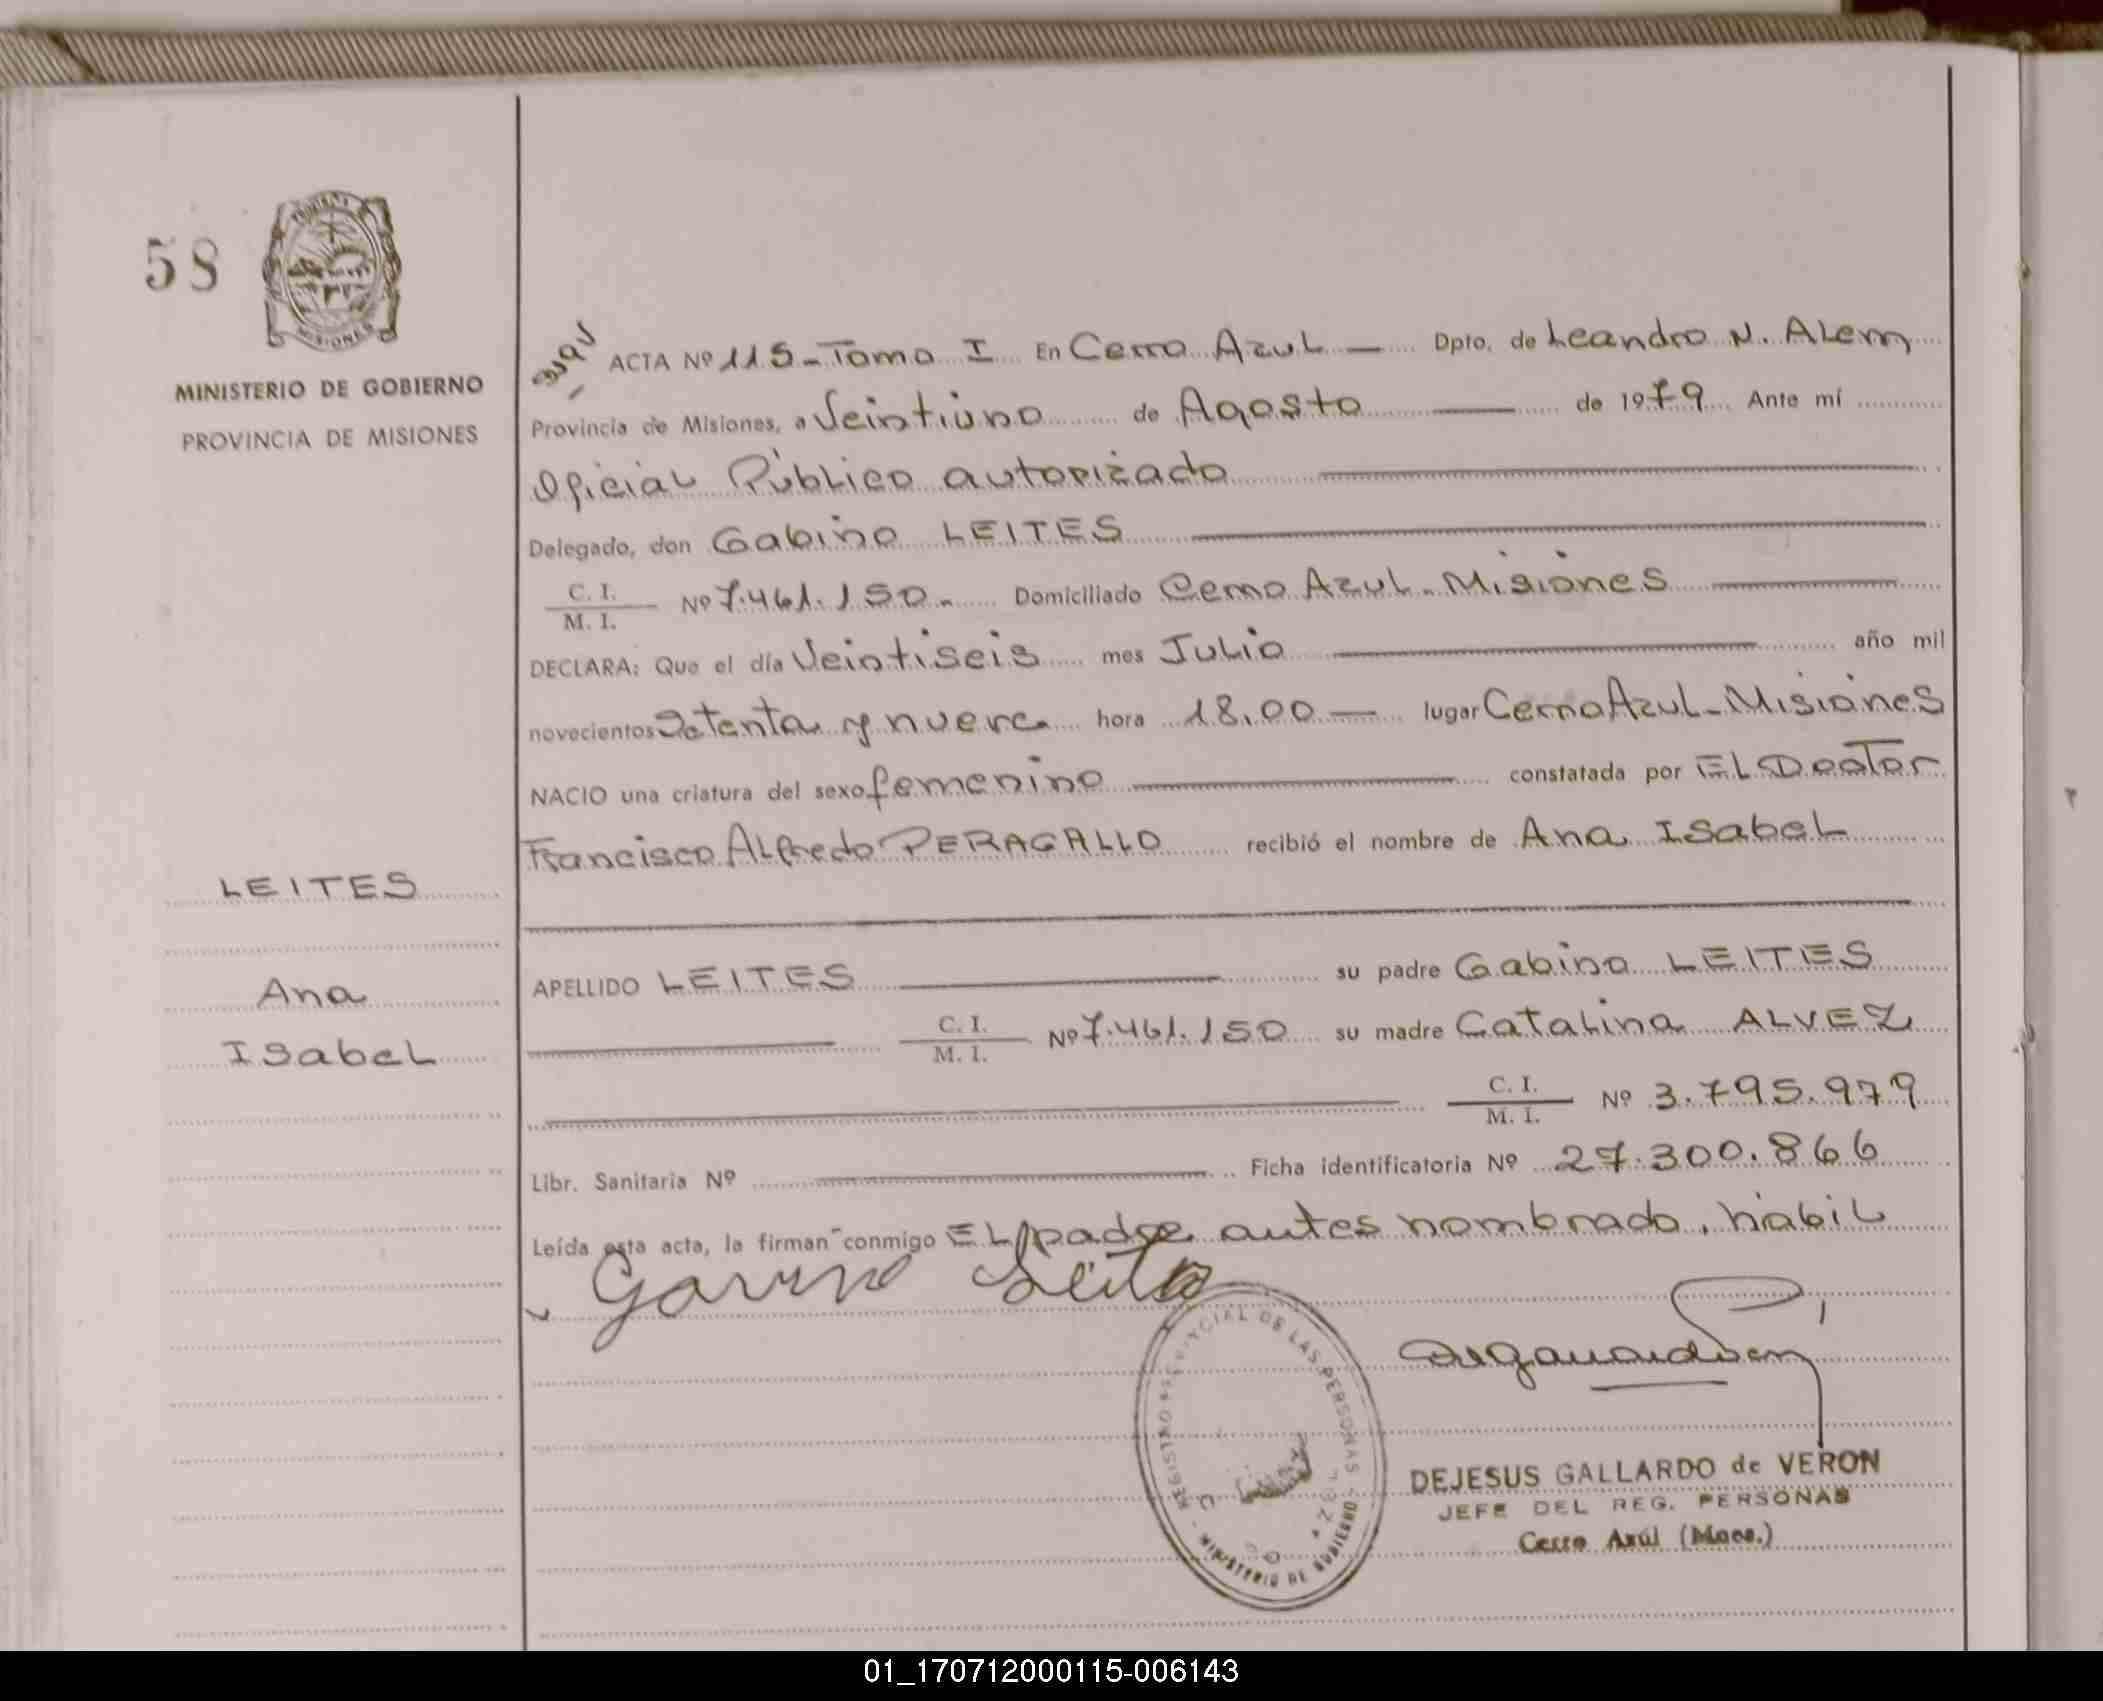 58
MISIONES
MINISTERIO DE GOBIERNO
PROVINCIA DE MISIONES
ACTA Nº 115 - Tomo I En Cerro Azul — Dpto. de Leandro N. Alem
Provincia de Misiones, a Veintiuno de Agosto — de 1979 Ante mí
Oficial Público autorizado
Delegado, don Gabino LEITES
C. I.
M. I. Nº 7.461.150.- Domiciliado Cerro Azul - Misiones
DECLARA: Que el día Veintiseis mes Julio año mil
novecientos Setenta y nueve hora 18,00 — lugar Cerro Azul - Misiones
NACIO una criatura del sexo femenino constatada por El Doctor
Francisco Alfredo PERAGALLO recibió el nombre de Ana Isabel
LEITES
APELLIDO LEITES su padre Gabino LEITES
Ana
C. I.
M. I. Nº 7.461.150 su madre Catalina ALVEZ
Isabel
C. I.
M. I. Nº 3.795.979
Libr. Sanitaria Nº Ficha identificatoria Nº 27.300.866
Leída esta acta, la firman conmigo El padre antes nombrado, hábil
REGISTRO PROVINCIAL DE LAS PERSONAS
MINISTERIO DE GOBIERNO
DEJESUS GALLARDO de VERON
JEFE DEL REG. PERSONAS
Cerro Azul (Mnes.)
01_170712000115-006143